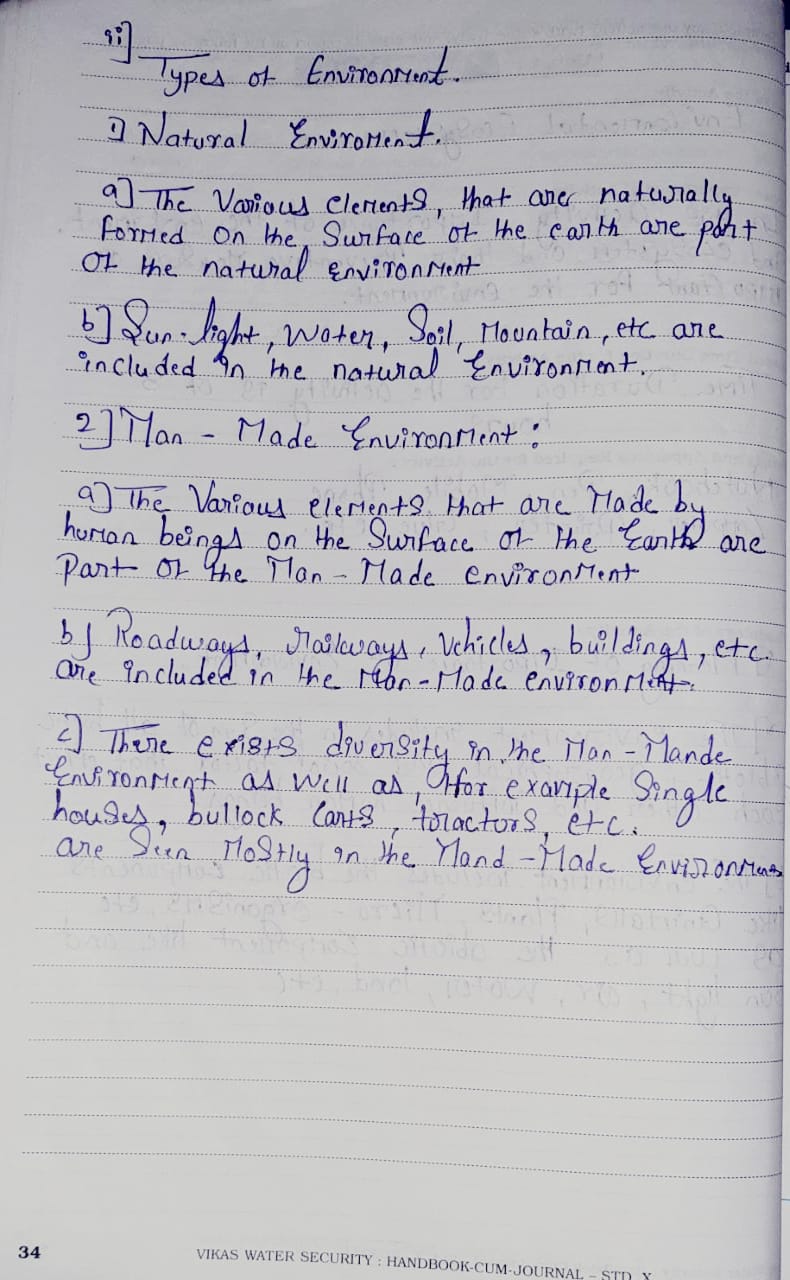 ii]
Types of Environment.
1) Natural Enviroment.
a] The Various elements, that are naturally
formed on the Surface of the earth are part
of the natural environment
b] Sun-light, Water, Soil, Mountain, etc are
included in the natural Environment.
2] Man - Made Environment:
a] The Various elements that are Made by
human beings on the Surface of the Earth are
Part of the Man - Made environment
b] Roadways, railways, Vehicles, buildings, etc.
are included in the Man - Made environment.
c] There exists diversity in the Man - Mande
Environment as well as, for example Single
houses, bullock Carts, toractors, etc.
are Seen Mostly in the Mand - Made Environment
34
VIKAS WATER SECURITY : HANDBOOK-CUM-JOURNAL – STD. X